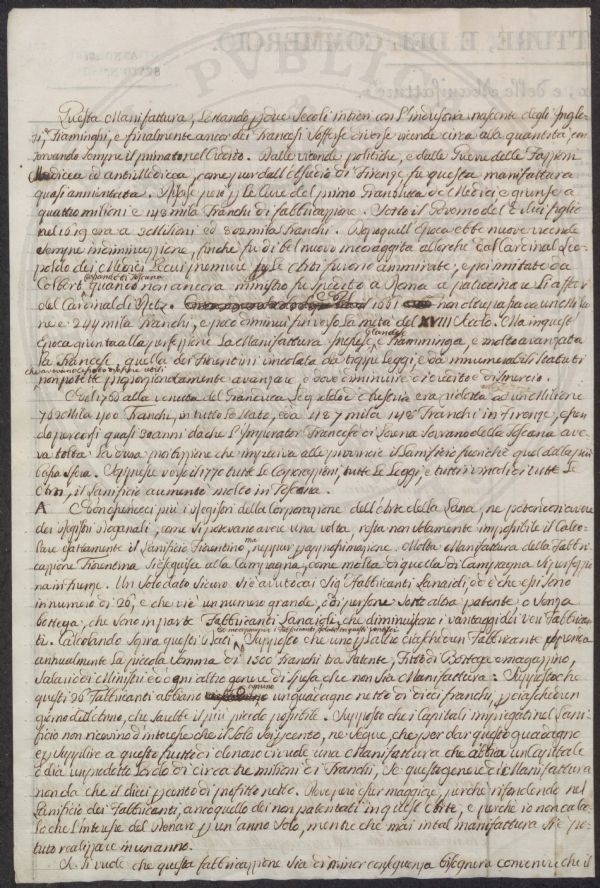 Questa Manifattura, lottando per due Secoli intieri con l'industria nascente degli Ingle-
si, Fiamminghi, e finalmente ancor dei Francesi sofferse diverse vicende circa alla quantità, con
servando sempre il primato nel Credito. Dalle vicende politiche, e dalle Guerre delle Fazioni
Medicea ed antiMedicea, come pur dall'assedio di Firenze fu questa manifattura
quasi annientata. Risorse però per le cure del primo Granduca de Medici e giunse a
quattro milioni e 148 mila Franchi di fabbricazione. Sotto il Governo del
nel 1619 era a 3 Millioni ed 802 mila Franchi. Dopo quell'Epoca ebbe nuove vicende
sempre in diminuzione, finche fu di bel nuovo incoraggita allorchè dal Cardinal Leo-
poldo dei Medici
Colbert quando non ancora ministro fu spedito a Roma a patrocinare li affari
del Cardinal di Retz. 1661 non oltrepassava un Millio
ne e 244 mila Franchi, e poco diminuì fin verso la metà del XVIII Secolo. Ma in quest
Epoca giunta alla perfezione la Manifattura Inglese, Olandese, Fiamminga, e molto avanzata
la Francese, quella dei Fiorentini vincolata da troppe leggi, e da innumerabili Statuti
che avevano cessato di essere utili
non potette progressivamente avanzare, e dove diminuire di credito e di smercio.
E del 1760 alla venuta del Granduca Leopoldo
762 Mila 400 Franchi in tutto lo Stato, ed a 487 mila 148 Franchi in Firenze, essen
do percorsi quasi 30 anni da che l'Imperator Francesco di Lorena Sovrano della Toscana ave
va tolta la dura proibizione che impediva alle provincie il Lanificio fuorichè quel della più
bassa sfera. Soppresse verso il 1770 tutte le Corporazioni, tutte le Leggi, e tutti i vincoli di tutte le
Arti, il Lanificio aumentò molto in Toscana.
A Ed non essendoci più i Registri della Corporazione dell'Arte della Lana, ne potendosi avere
dei Registri Doganali, come si potevano avere una volta, resta non solamente impossibile il Calco-
lare esattamente il Lanificio Fiorentino, ma neppur per approssimazione. Molta Manifattura della Fabbri-
cazione Fiorentina si eseguisce alla Campagna, come molta di quella di Campagna si perfezio
na in Firenze. Un solo dato sicuro si è avuto dai Sigi Fabbricanti Lanaioli, ed è che essi sono
in numero di 26, e che vi è un numero grande di persone sotto altra patente, o senza
bottega, che sono in parte Fabbricanti Lanaioli, che diminuiscono i vantaggi dei veri Fabbrican
ti. Calcolando sopra questi dati, Supposto che uno per l'altro ciaschedun Fabbricante spenda
annualmente la piccola somma di 1500 Franchi tra Patente, Fitto di Bottega e magazzino,
Salario dei Ministri ed ogni altro genere di spesa che non sia Manifattura: Supposto che
questi 26 Fabbricanti abbiano un guadagno netto di dieci franchi per ciaschedun
giorno dell'Anno, che sarebbe il più piccolo possibile. Supposto che i Capitali impiegati nel Lani-
ficio non ricevino d'interesse che il solo sei per cento, ne segue, che per dar questo guadagno
e supplire a questo frutto di denaro ci vuole una Manifattura che abbia un Capitale
e dia un prodotto lordo di circa tre milioni di Franchi, se questo genere di Manifattura
non da che il dieci per cento di profitto netto. Deve però esser maggiore, perchè rifondende nel
Lanificio dei Fabbricanti, anco quello dei non patentati in quest'Arte, e perchè io non calco
lo che l'interesse del Denaro per un anno solo, mentre che mai in tal manifattura si è po-
tuto realizzare in un anno.
Se si vuole che questa fabbricazione sia di minor conseguenza bisognerà convenire che il